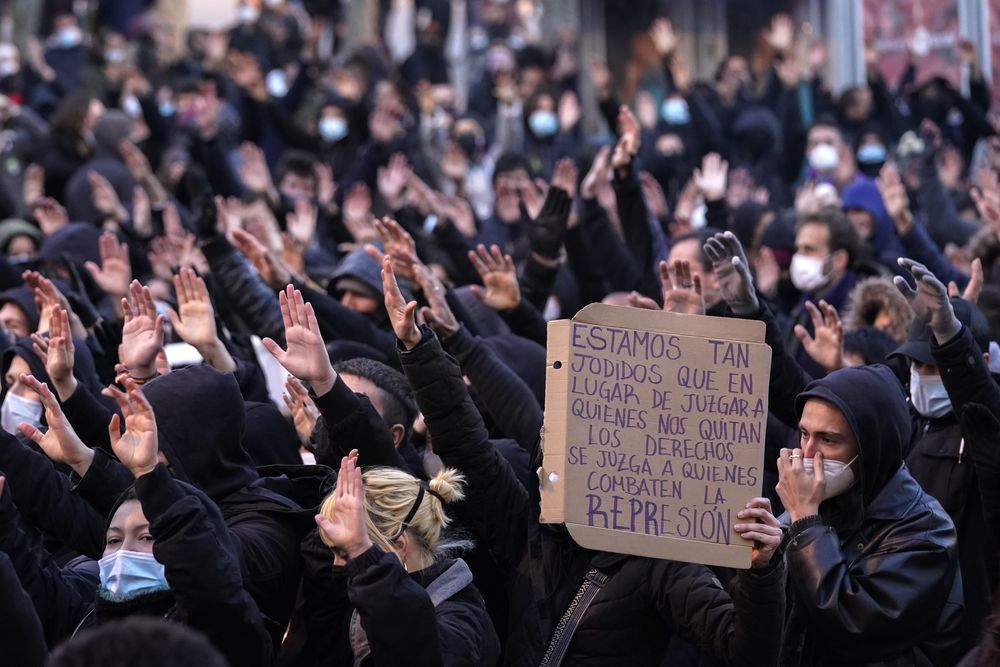 ESTAMOS TAN
JODIDOS QUE EN
LUGAR DE JUZGAR A
QUIENES NOS QUITAN
LOS DERECHOS
SE JUZGA A QUIENES
COMBATEN LA
REPRESIÓN